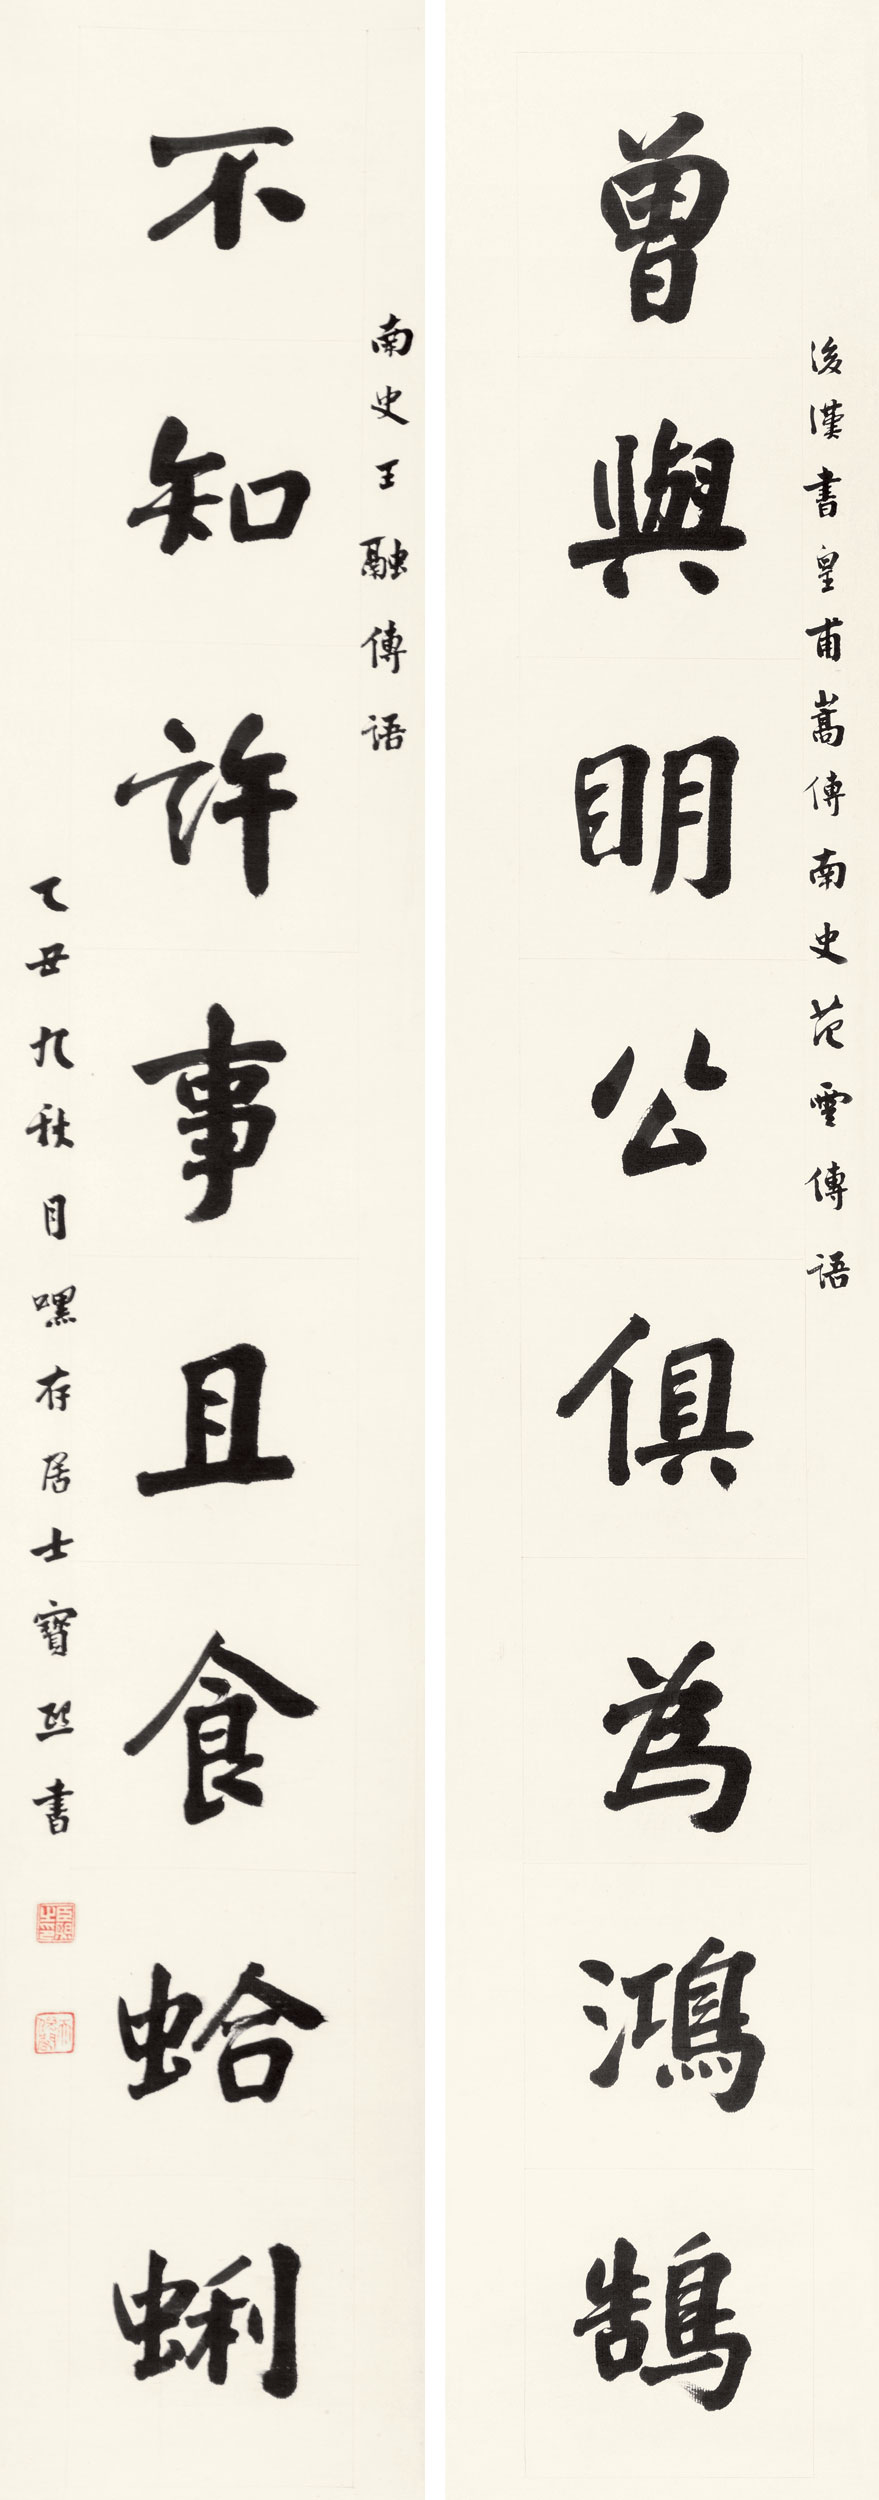 後漢書皇甫嵩傳南史范雲傳語
曾與明公俱為鴻鵠
南史王融傳語
不知許事且食蛤蜊
乙丑九秋日嘿存居士寶熙書